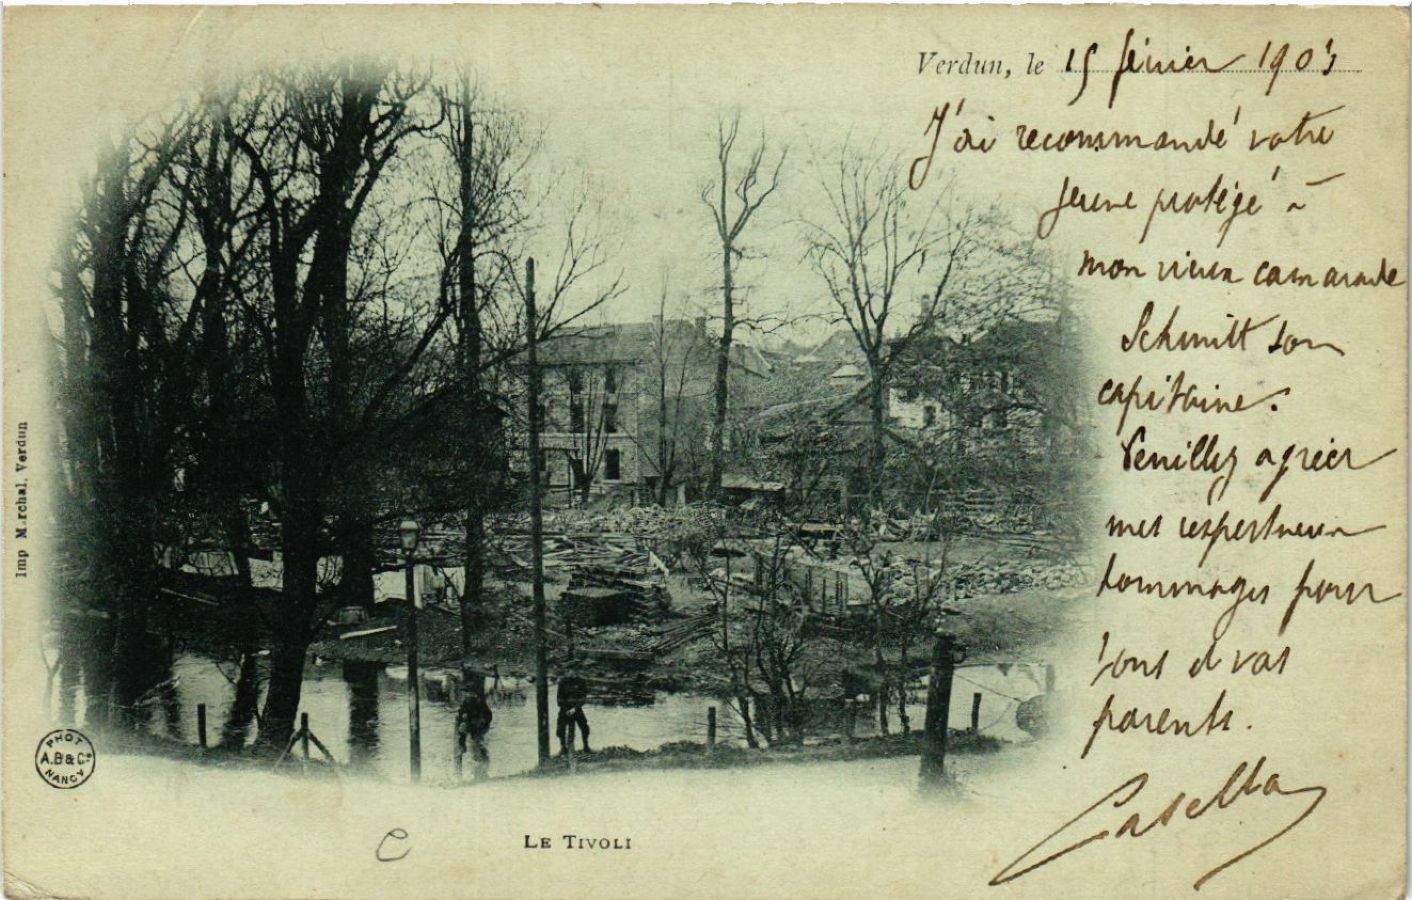 Verdun, le 15 février 1903
J'ai recommandé votre
jeune protégé à
mon vieux camarade
Schmitt son
capitaine.
Veuillez agréer
mes respectueux
hommages pour
vous et vos
parents.
Casella
Imp M.rchal, Verdun
PHOT
A.B & Cie
NANCY
LE TIVOLI